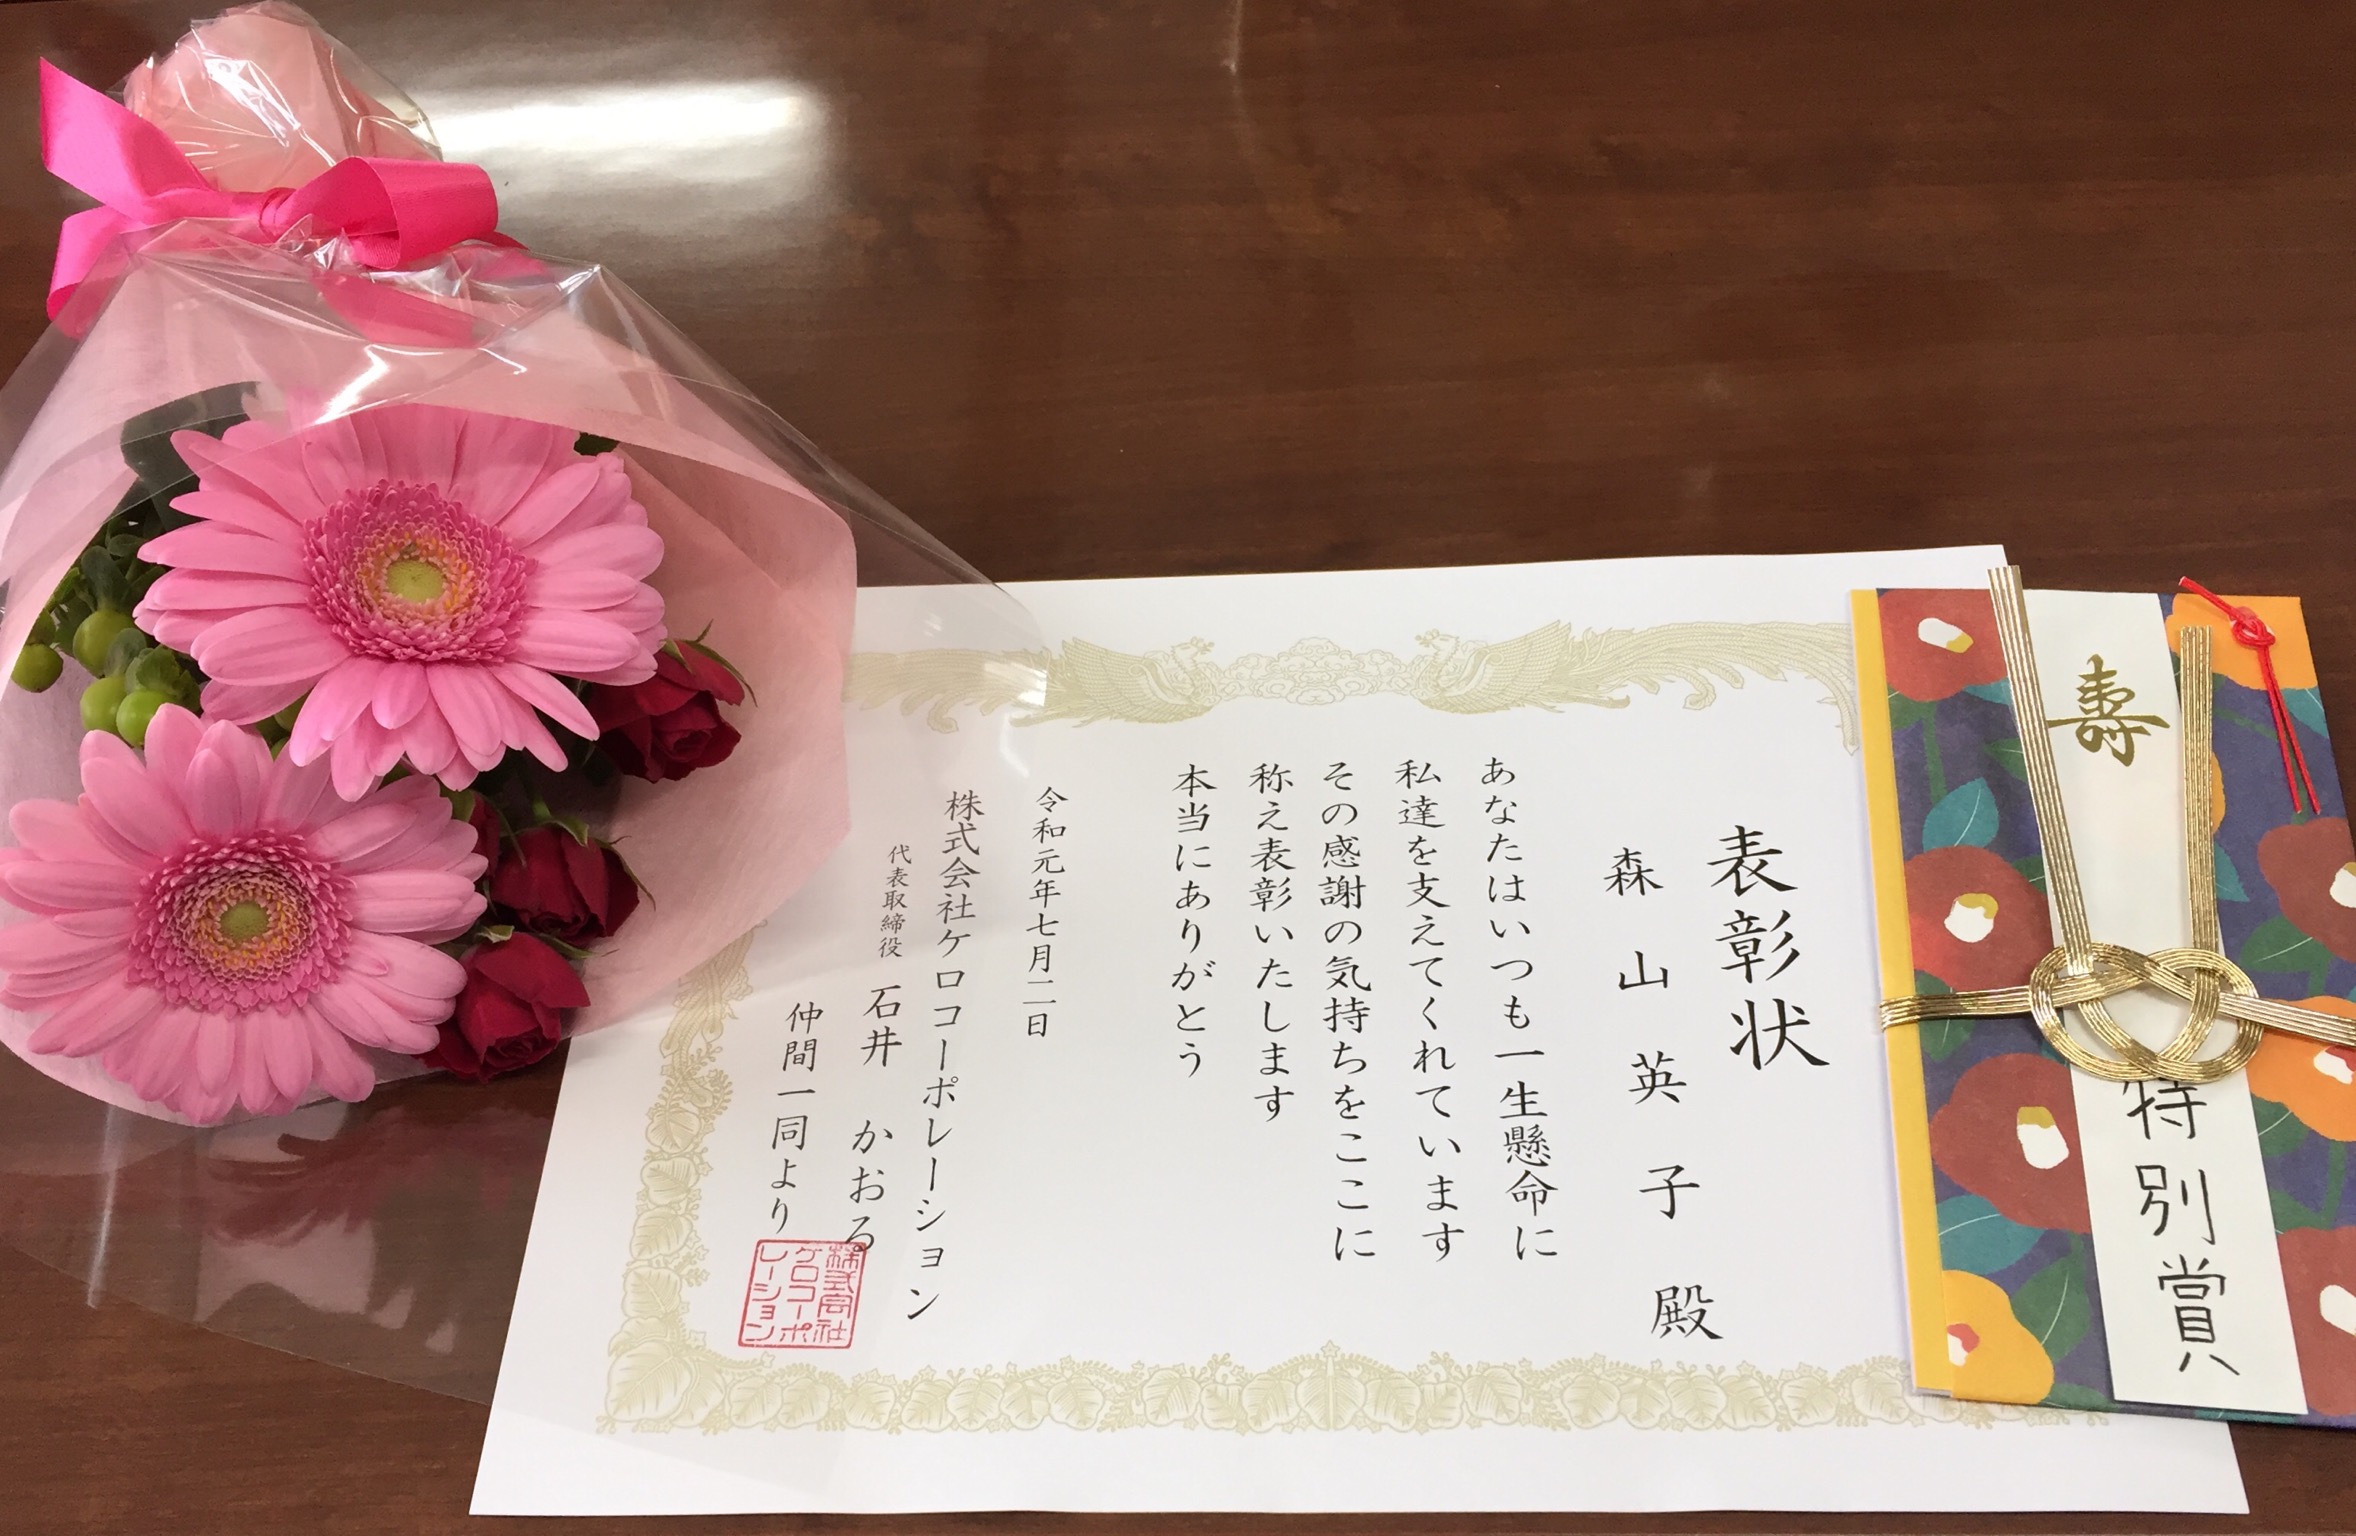 寿
特別賞
表彰状
森山英子殿
あなたはいつも一生懸命に
私達を支えてくれています
その感謝の気持ちをここに
称え表彰いたします
本当にありがとう
令和元年七月二日
株式会社ケロコーポレーション
代表取締役 石井 かおる
仲間一同より
株式会社
ケロコーポ
レーション